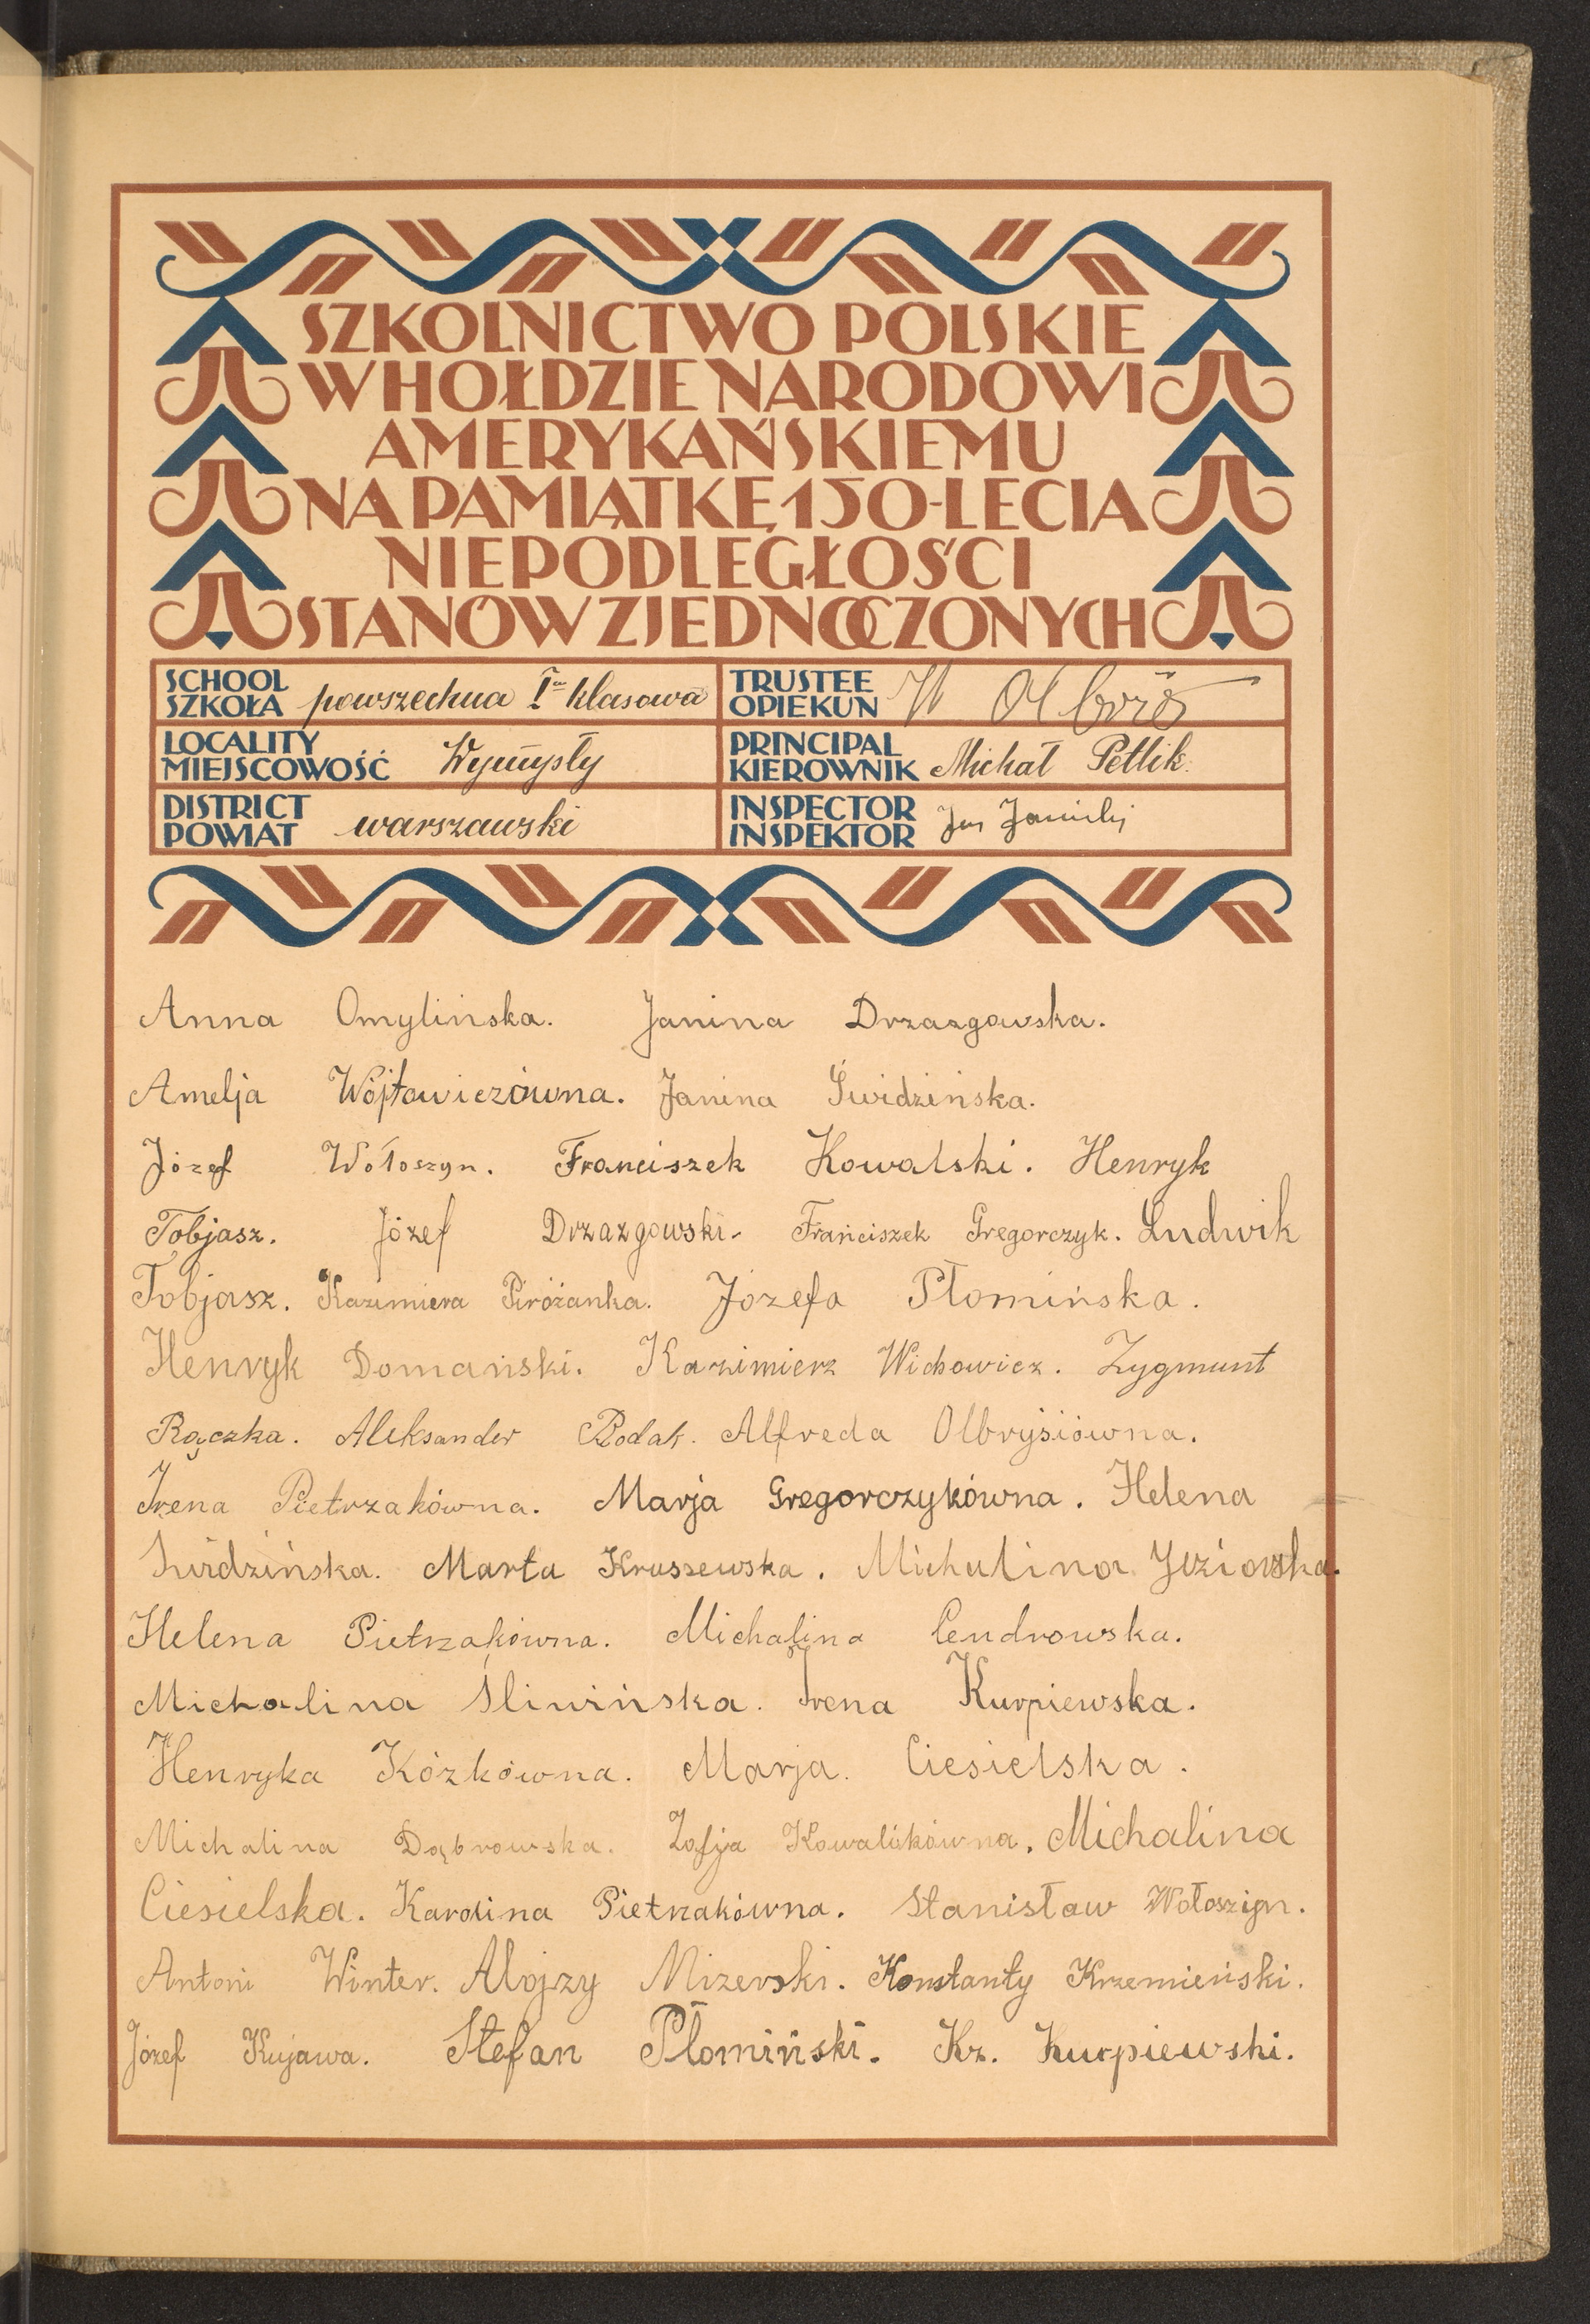 SZKOLNICTWO POLSKIE
W HOŁDZIE NARODOWI
AMERYKAŃSKIEMU
NA PAMIĄTKĘ 150-LECIA
NIEPODLEGŁOŚCI
STANÓW ZJEDNOCZONYCH
SCHOOL SZKOŁA powszechna 1-a klasowa
TRUSTEE OPIEKUN
LOCALITY MIEJSCOWOŚĆ Wymysły
PRINCIPAL KIEROWNIK Michał Petlik.
DISTRICT POWIAT warszawski
INSPECTOR INSPEKTOR
Anna Omylińska. Janina Drzazgowska.
Amelja Wójtowiczówna. Janina Świdzińska.
Józef Wołoszyn. Franciszek Kowalski. Henryk
Tobjasz. Józef Drzazgowski. Franciszek Gregorczyk. Ludwik
Tobjasz. Kazimiera Piróżanka. Józefa Płomińska.
Henryk Domański. Kazimierz Wichowicz. Zygmunt
Rączka. Aleksander Rodak. Alfreda Olbrysiówna.
Irena Pietrzakówna. Marja Gregorczykówna. Helena
Świdzińska. Marta Kruszewska. Michalina
Helena Pietrzakówna. Michalina Cendrowska.
Michalina Śliwińska. Irena Kurpiewska.
Henryka Kózkówna. Marja. Ciesielska.
Michalina Dąbrowska. Zofja Kowalikówna. Michalina
Ciesielska. Karolina Pietrzakówna. Stanisław Wołoszyn.
Antoni Winter. Alojzy Mizerski. Konstanty Krzemieński.
Józef Kujawa. Stefan Płomiński. Kz. Kurpiewski.